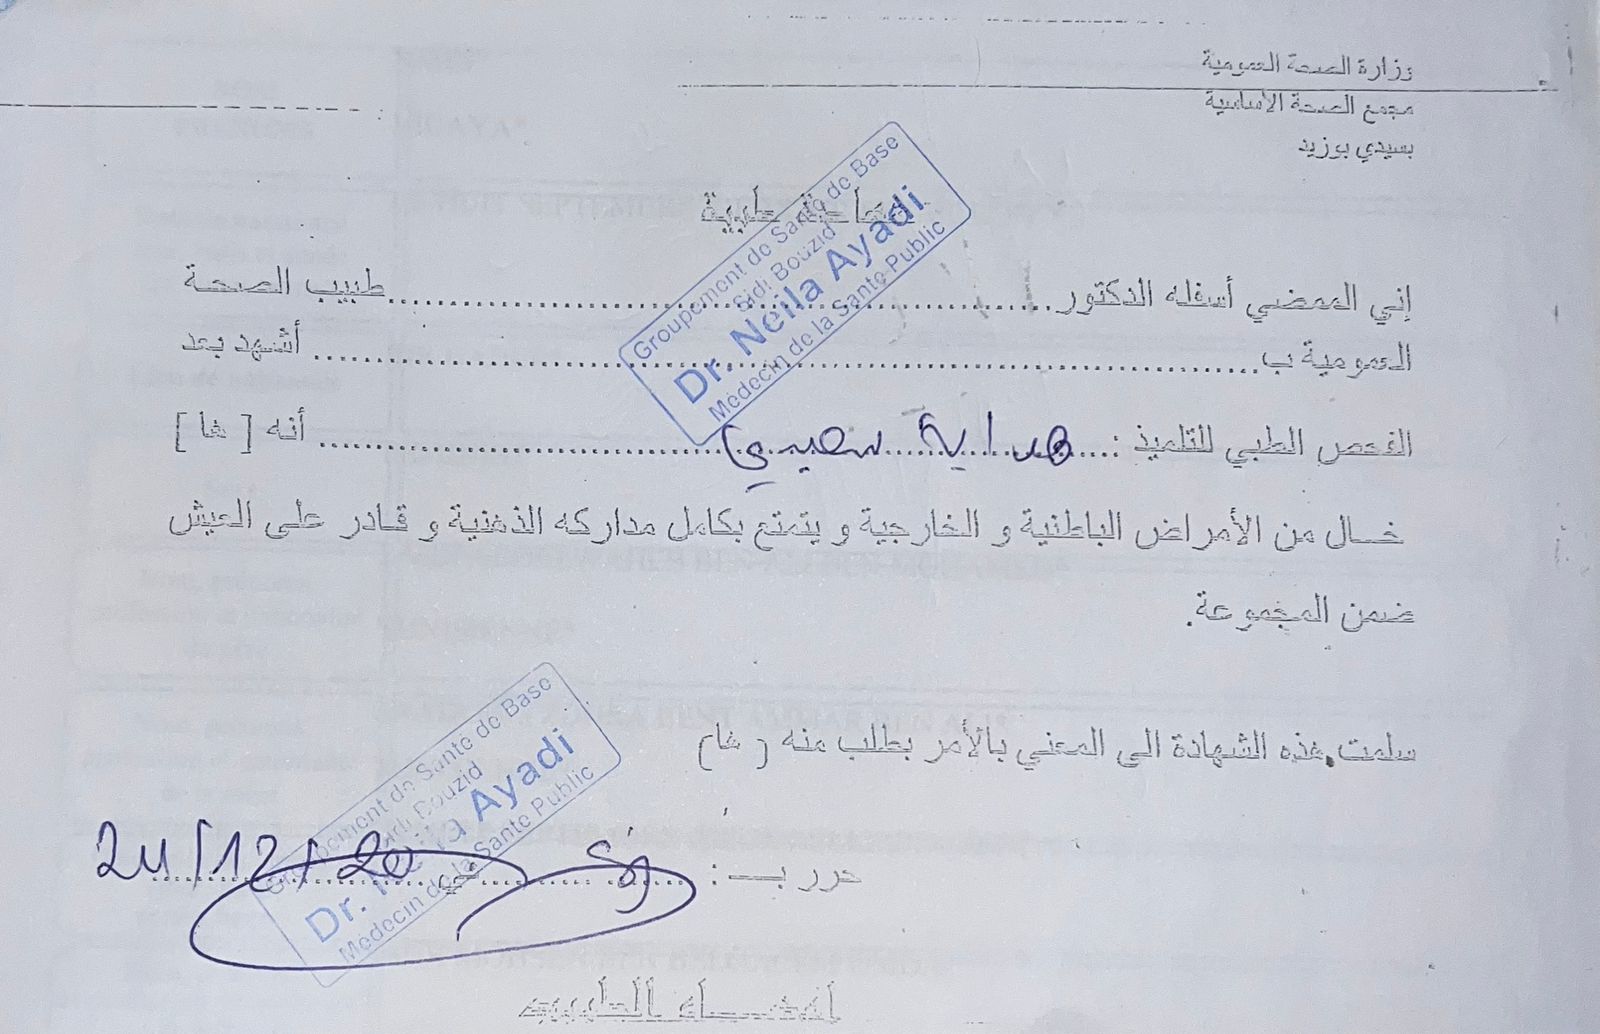 وزارة الصحة العمومية
مجمع الصحة الأساسية
بسيدي بوزيد
شهادة طبية
إني الممضي أسفله الدكتور طبيب الصحة
Groupement de Santé de Base
Sidi Bouzid
Dr. Neila Ayadi
Médecin de la Santé Public
العمومية ب أشهد بعد
الفحص الطبي للتلميذ : هداية سعيدي أنه [ ها ]
خال من الأمراض الباطنية و الخارجية و يتمتع بكامل مداركه الذهنية و قادر على العيش
ضمن المجموعة.
سلمت هذه الشهادة الى المعني بالأمر بطلب منه ( ها )
Groupement de Santé de Base
Sidi Bouzid
Dr. Neila Ayadi
Médecin de la Santé Public
حرر بـ : في 24/12/20
امضاء الطبيب